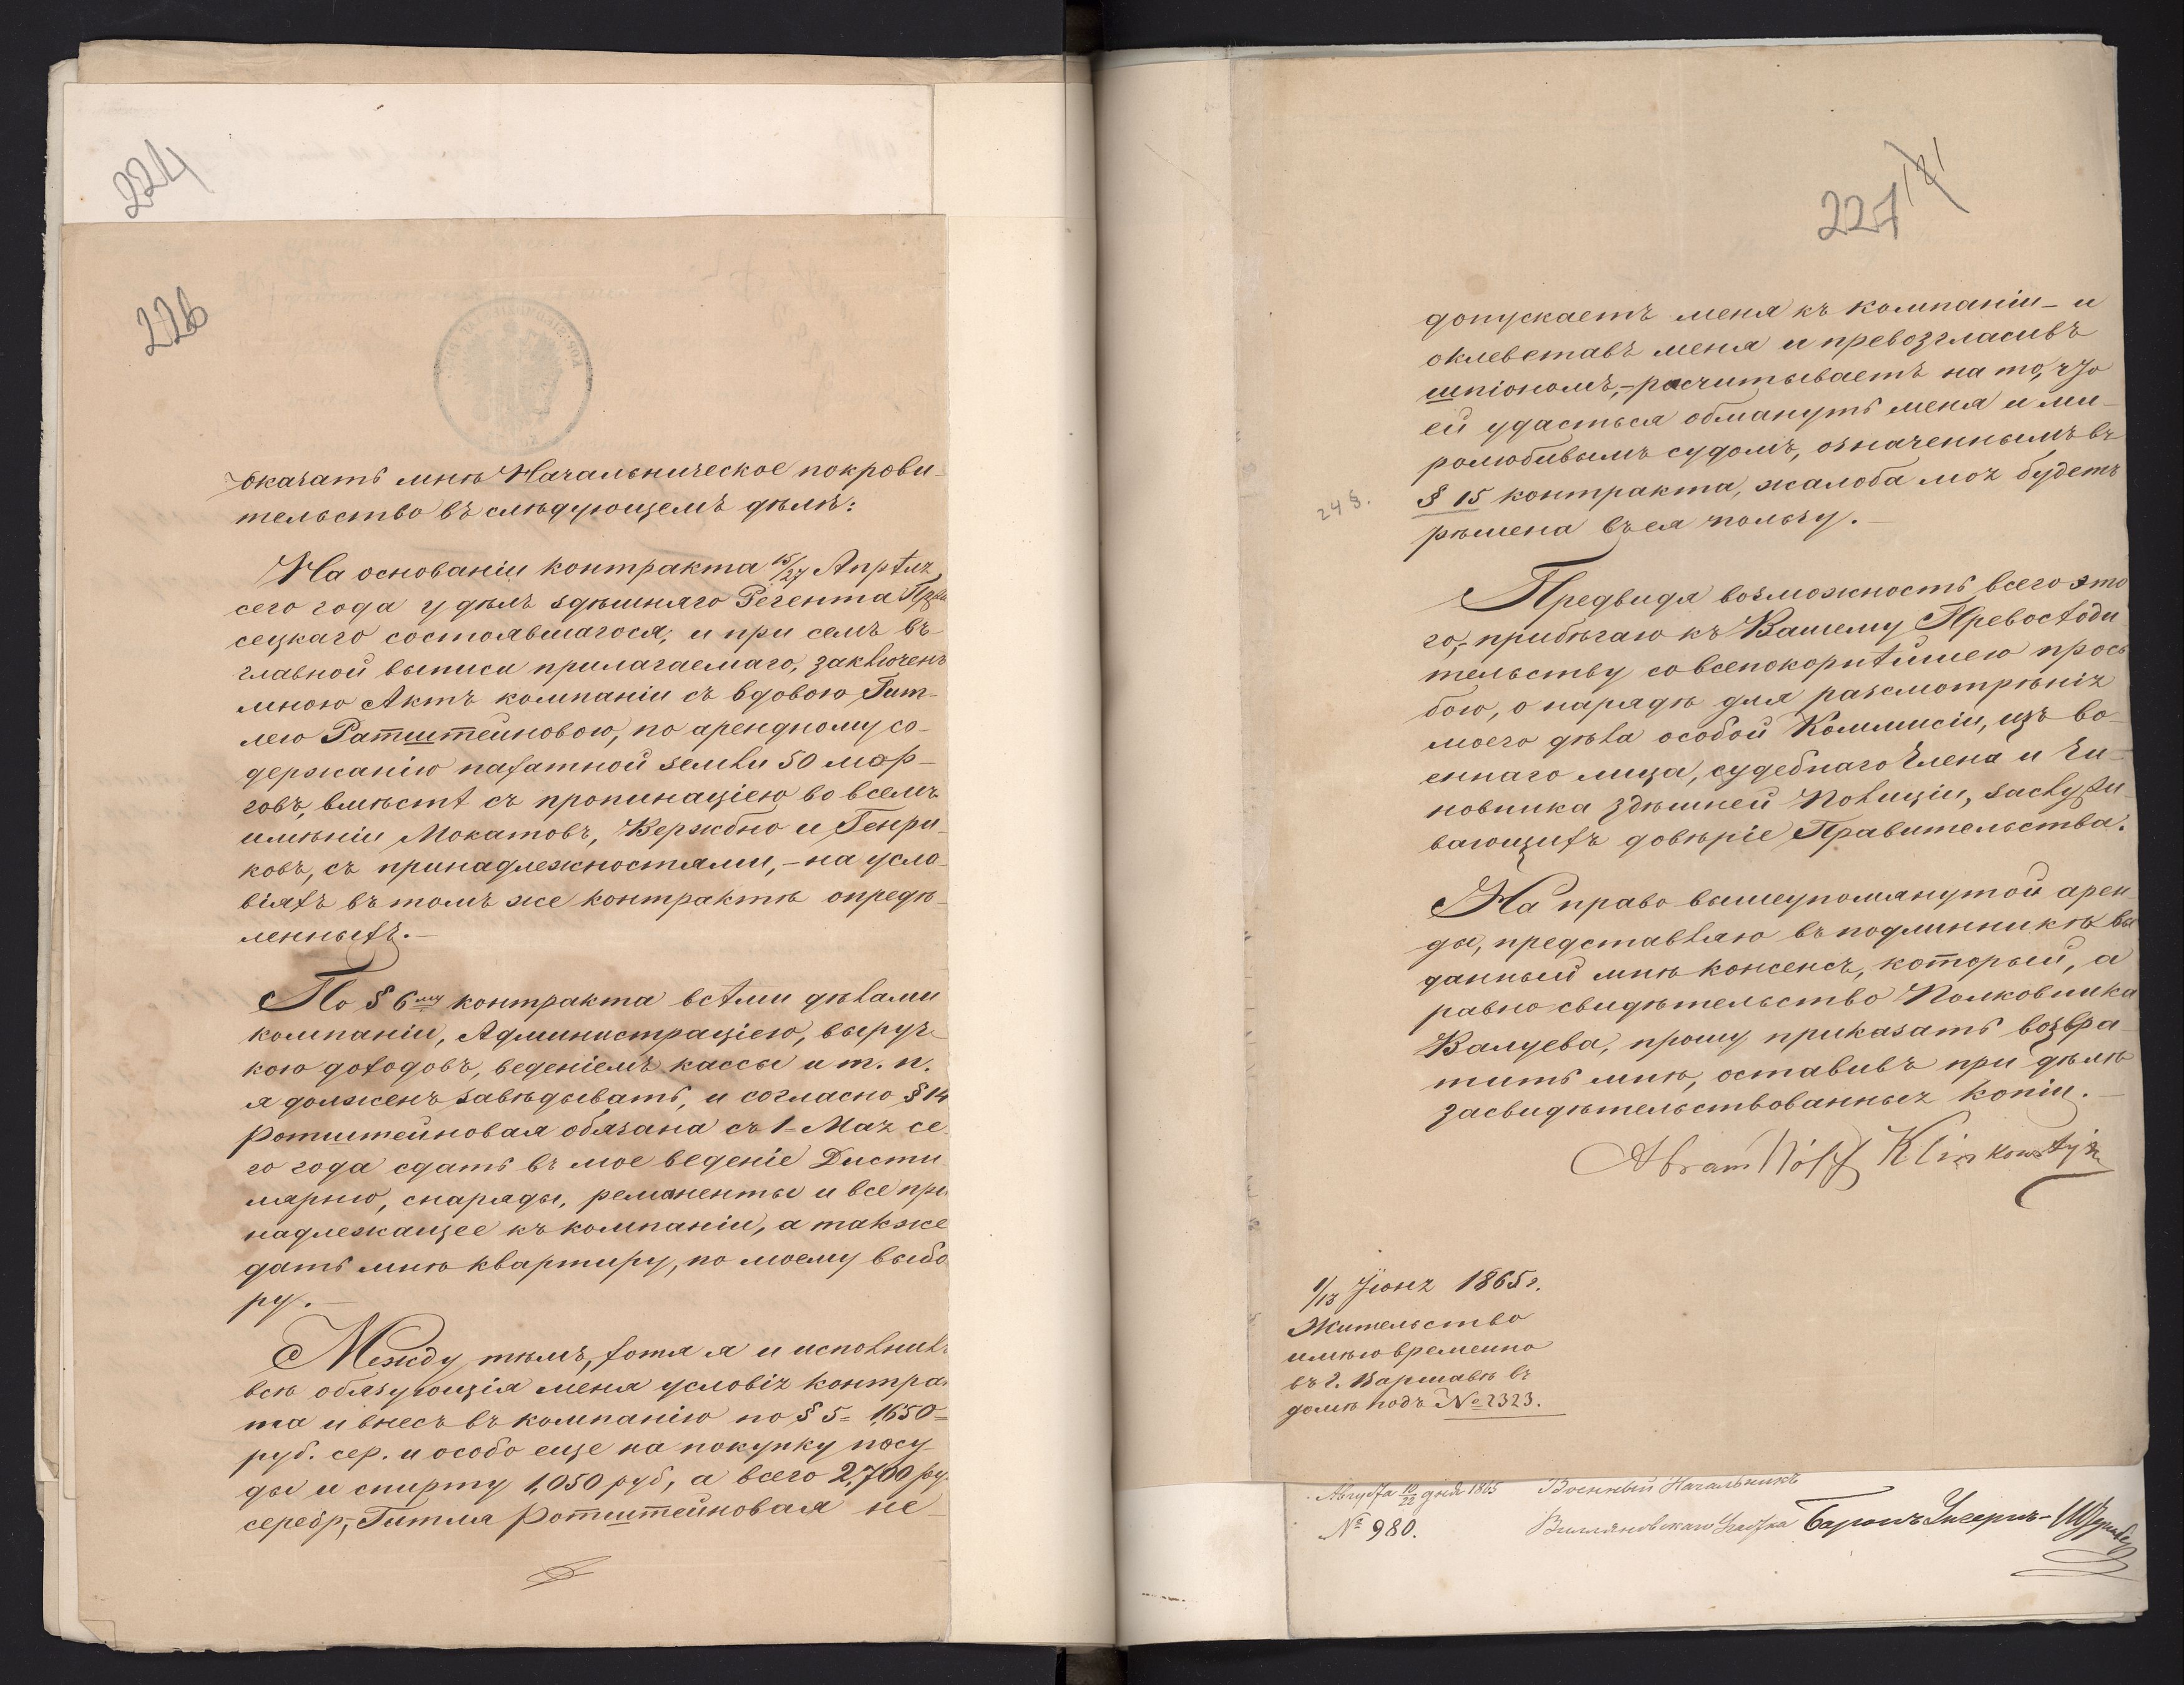 224
226
оказать мнѣ Начальническое покрови-
тельство въ слѣдующемъ дѣлѣ:
На основаніи контракта 15/27 Апрѣля
сего года у дѣлъ здѣшняго Регента
сецкаго состоявшагося, и при семъ въ
главной выписи прилагаемаго, заключенъ
мною Актъ компаніи съ вдовою Гит-
лею Ратштейновою, по арендному со-
держанію пахатной земли 50 мор-
говъ, вмѣстѣ съ пропинаціею во всемъ
имѣніи Мокатовъ, Вержбно и Генри-
ковъ, съ принадлежностями, - на усло-
віяхъ въ томъ же контрактѣ опредѣ-
ленныхъ.-
По § 6му контракта всѣми дѣлами
компаніи, Администраціею, выруч-
кою доходовъ, веденіемъ кассы и т. п.
я долженъ завѣдывать, и согласно § 14
Ротштейновая обязана съ 1- Мая се-
го года сдать въ мое веденіе Дисти-
лярню, снаряды, ременты и все при
надлежащее къ компаніи, а также
дать мнѣ квартиру, по моему выбо
ру.-
Между тѣмъ, хотя я и исполнилъ
всѣ обязующія меня условія контрак
та и внесъ въ компанію по § 5= 1,650=
руб. сер. и особо еще на покупку посу-
ды и спирту 1,050 руб, а всего 2,700 ру.
серебр, Гитля Ротштейновая не
227
121
допускаетъ меня къ компаніи - и
оклеветавъ меня и превозгласивъ
шпіономъ, - расчитываетъ на то, что
ей удасться обмануть меня и ми-
ролюбивымъ судомъ, означеннымъ въ
24 §.
§ 15 контракта, жалоба моя будетъ
рѣшена въ ея пользу.-
Предвидя возможность всего это
го,- прибѣгаю къ Вашему Превосходи
тельству со всепокорнѣйшею прось
бою, о нарядѣ для разсмотрѣнія
моего дѣла особой Коммисіи, изъ во-
еннаго лица, судебнаго Члена и Чи-
новника здѣшней Полиціи, заслужи-
вающихъ довѣріе Правительства.
На право вышеупомянутой арен
ды, представляю въ подлинникѣ вы
данный мнѣ консенсъ, который, а
равно свидѣтельство Полковника
Валуева, прошу приказать возвра-
тить мнѣ, оставивъ при дѣлѣ
засвидѣтельствованныя копіи.-
Abram Wolf Klinkowsztejn
1/13 Іюня 1865 г.
Жительство
имѣю временно
въ г. Варшавѣ въ
домѣ подъ № 2323.
Августа 10/22 дня 1865 Военный Начальникъ
№ 980.
Виляновскаго Участка Баронъ Унгернъ-Штернбергъ